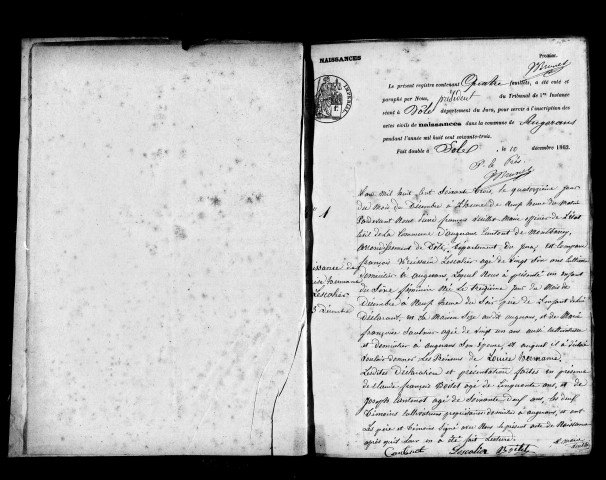 NAISSANCES
Premier.
Le présent registre contenant Quatre feuillets, a été coté et
paraphé par Nous, président du Tribunal de 1re Instance
séant à Dole département du Jura, pour servir à l'inscription des
actes civils de naissances dans la commune de Augerans
pendant l'année mil huit cent soixante-trois.
Fait double à Dole, le 10 décembre 1862.
P. le Prés.
N° 1
L'an mil huit cent soixante trois, le quatorzième jour
du Mois de Décembre à l'heure de Neuf heure du Matin
Pardevant Nous françois Maire officier de l'état
civil de la Commune d'augerans Canton de Montbarrey,
arrondissement de Dole, département du Jura, est Comparu
françois Lescalier agé de vingt six ans
domicilié à augerans, Lequel Nous à présenté un enfant
du Sexe féminin Né Le treizième jour du Mois de
Décembre à Neuf heure du Soir de
Déclarant, en Sa Maison Size audit augerans, et de Marie
françoise agée de vingt un ans
et domiciliée à augerans Son épouse, et auquel il à déclaré
vouloir donner Les Prénoms de Louise hermanie,
Lesdites Déclaration et présentation faites en présence
de Claude françois Boilet agé de Cinquante ans, et de
Joseph Cantenot agé de Soixante Neuf ans, Les deux
témoins Cultivateurs propriétaires domiciliés à augerans, et ont
Les père et témoins Signé avec Nous Le présent acte de Naissance
après qu'il Leur en a été fait Lecture.
issance de
ise hermanie
Lescalier
décembre
Cantenot Lescalier Boilet